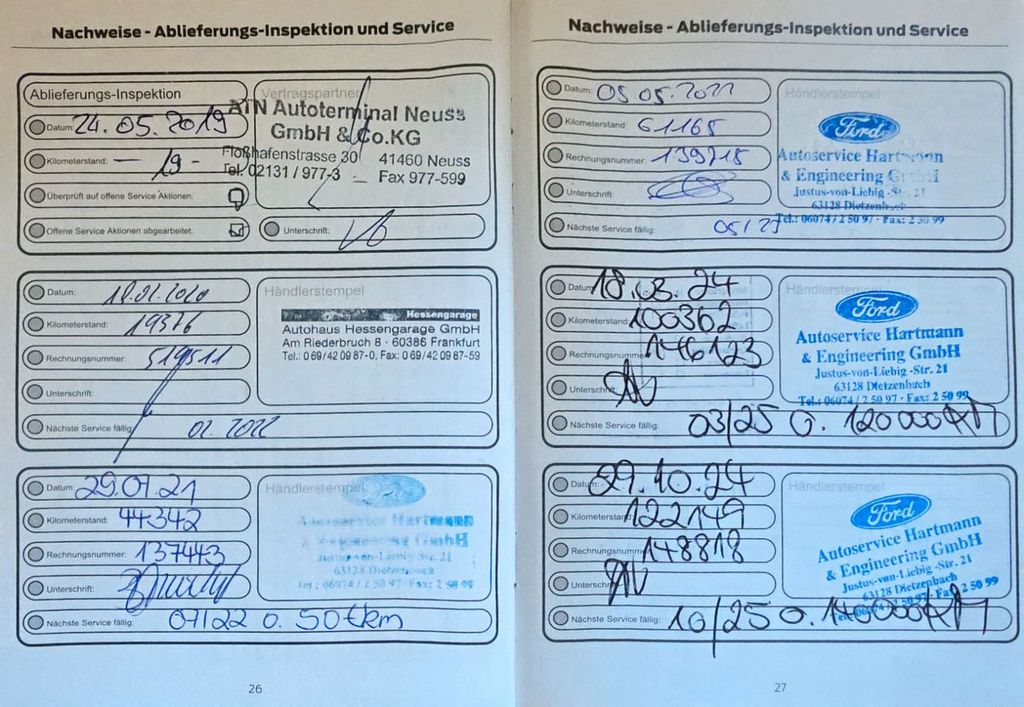 Nachweise - Ablieferungs-Inspektion und Service
Ablieferungs-Inspektion
Datum: 24.05.2019
Kilometerstand: - 19 -
Überprüft auf offene Service Aktionen:
Offene Service Aktionen abgearbeitet:
Vertragspartner
ATN Autoterminal Neuss
GmbH & Co.KG
Floßhafenstrasse 30 41460 Neuss
Tel. 02131 / 977-3 Fax 977-599
Unterschrift:
Datum:
Kilometerstand: 19376
Rechnungsnummer: 519511
Unterschrift:
Nächste Service fällig:
Händlerstempel
Hessengarage
Autohaus Hessengarage GmbH
Am Riederbruch 8 · 60386 Frankfurt
Tel.: 0 69/42 09 87-0, Fax: 0 69/42 09 87-59
Datum: 29.07.21
Kilometerstand: 44342
Rechnungsnummer: 137443
Unterschrift:
Nächste Service fällig: 07/22 o. 50tkm
Händlerstempel
Autoservice Hartmann
& Engineering GmbH
Justus-von-Liebig-Str. 21
63128 Dietzenbach
Tel.: 06074 / 2 50 97 · Fax: 2 50 99
26
Nachweise - Ablieferungs-Inspektion und Service
Datum: 05 05. 2022
Kilometerstand: 61165
Rechnungsnummer: 139718
Unterschrift:
Nächste Service fällig: 05/23
Händlerstempel
Ford
Autoservice Hartmann
& Engineering GmbH
Justus-von-Liebig-Str. 21
63128 Dietzenbach
Tel.: 06074 / 2 50 97 · Fax: 2 50 99
Datum: 18.03.24
Kilometerstand: 100362
Rechnungsnummer: 146123
Unterschrift:
Nächste Service fällig: 03/25 o. 120000KM
Händlerstempel
Ford
Autoservice Hartmann
& Engineering GmbH
Justus-von-Liebig-Str. 21
63128 Dietzenbach
Tel.: 06074 / 2 50 97 · Fax: 2 50 99
Datum: 29.10.24
Kilometerstand: 122149
Rechnungsnummer: 148818
Unterschrift:
Nächste Service fällig: 10/25 o. 140000KM
Händlerstempel
Ford
Autoservice Hartmann
& Engineering GmbH
Justus-von-Liebig-Str. 21
63128 Dietzenbach
Tel.: 06074 / 2 50 97 · Fax: 2 50 99
27